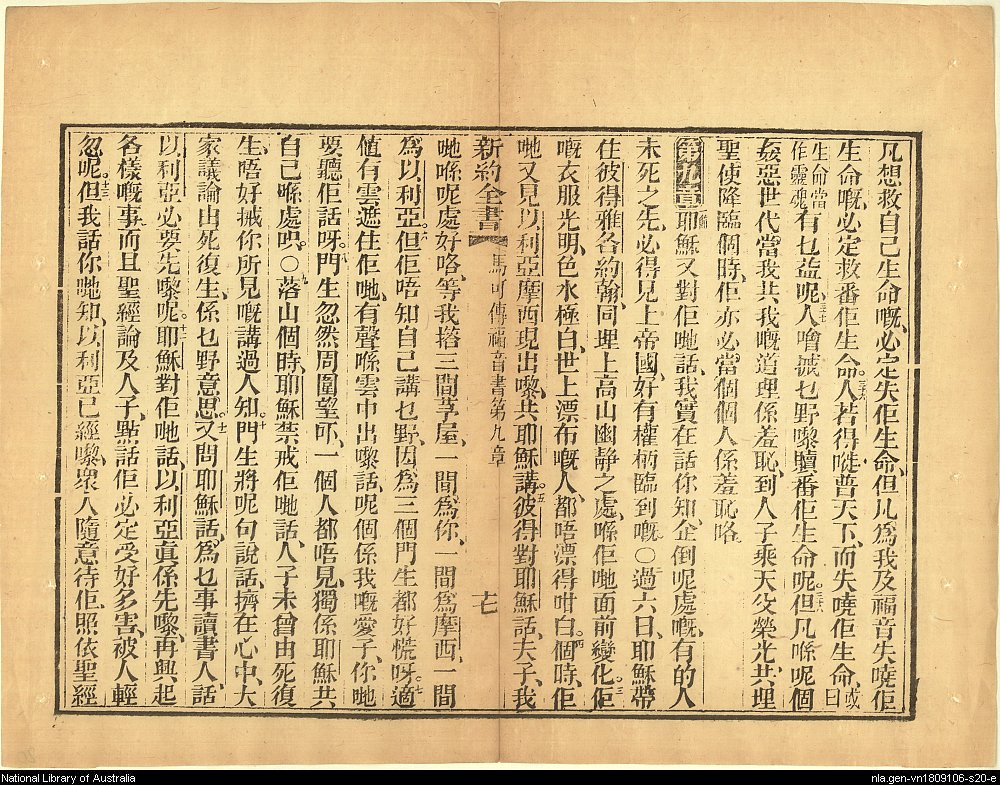 凡想救自己生命嘅、必定失佢生命、但凡爲我及福音失嘵佢
生命嘅、必定救番佢生命。三十六人若得嗮普天下、而失嘵佢生命、或曰
生命當作靈魂有乜益呢。三十七人噲攞乜野嚟贖番佢生命呢。三十八但凡喺呢個
姦惡世代、當我共我嘅道理係羞恥、到人子乘天父榮光、共埋
聖使降臨個時、佢亦必當個個人係羞恥咯、
第九章耶穌又對佢哋話、我實在話你知、企倒呢處嘅、有的人
未死之先、必得見上帝國、好有權柄臨到嘅。○過六日、耶穌帶
住彼得雅各約翰、同埋上高山幽靜之處、喺佢哋面前變化。三佢
嘅衣服光明、色水極白、世上漂布嘅人、都唔漂得咁白。四個時、佢
哋又見以利亞摩西現出嚟、共耶穌講。五彼得對耶穌話、夫子、我
新約全書 馬可傳福音書第九章 十七
哋喺呢處好咯、等我搭三間茅屋、一間爲你、一間爲摩西、一間
爲以利亞。六但佢唔知自己講乜野、因爲三個門生都好慌呀。七適
値有雲遮住佢哋、有聲喺雲中出嚟、話、呢個係我嘅愛子、你哋
要聽佢話呀。八門生忽然周圍望吓、一個人都唔見、獨係耶穌共
自己喺處呾。○九落山個時、耶穌禁戒佢哋話、人子未曾由死復
生、唔好將你所見嘅講過人知。十門生將呢句說話、擠在心中、大
家議論由死復生、係乜野意思。十一又問耶穌話、爲乜事讀書人話
以利亞必要先嚟呢。十二耶穌對佢哋話、以利亞眞係先嚟、再興起
各樣嘅事、而且聖經論及人子、點話佢必定受好多害、被人輕
忽呢。十三但我話你哋知、以利亞已經嚟、衆人隨意待佢、照依聖經
National Library of Australia
nla.gen-vn1809106-s20-e